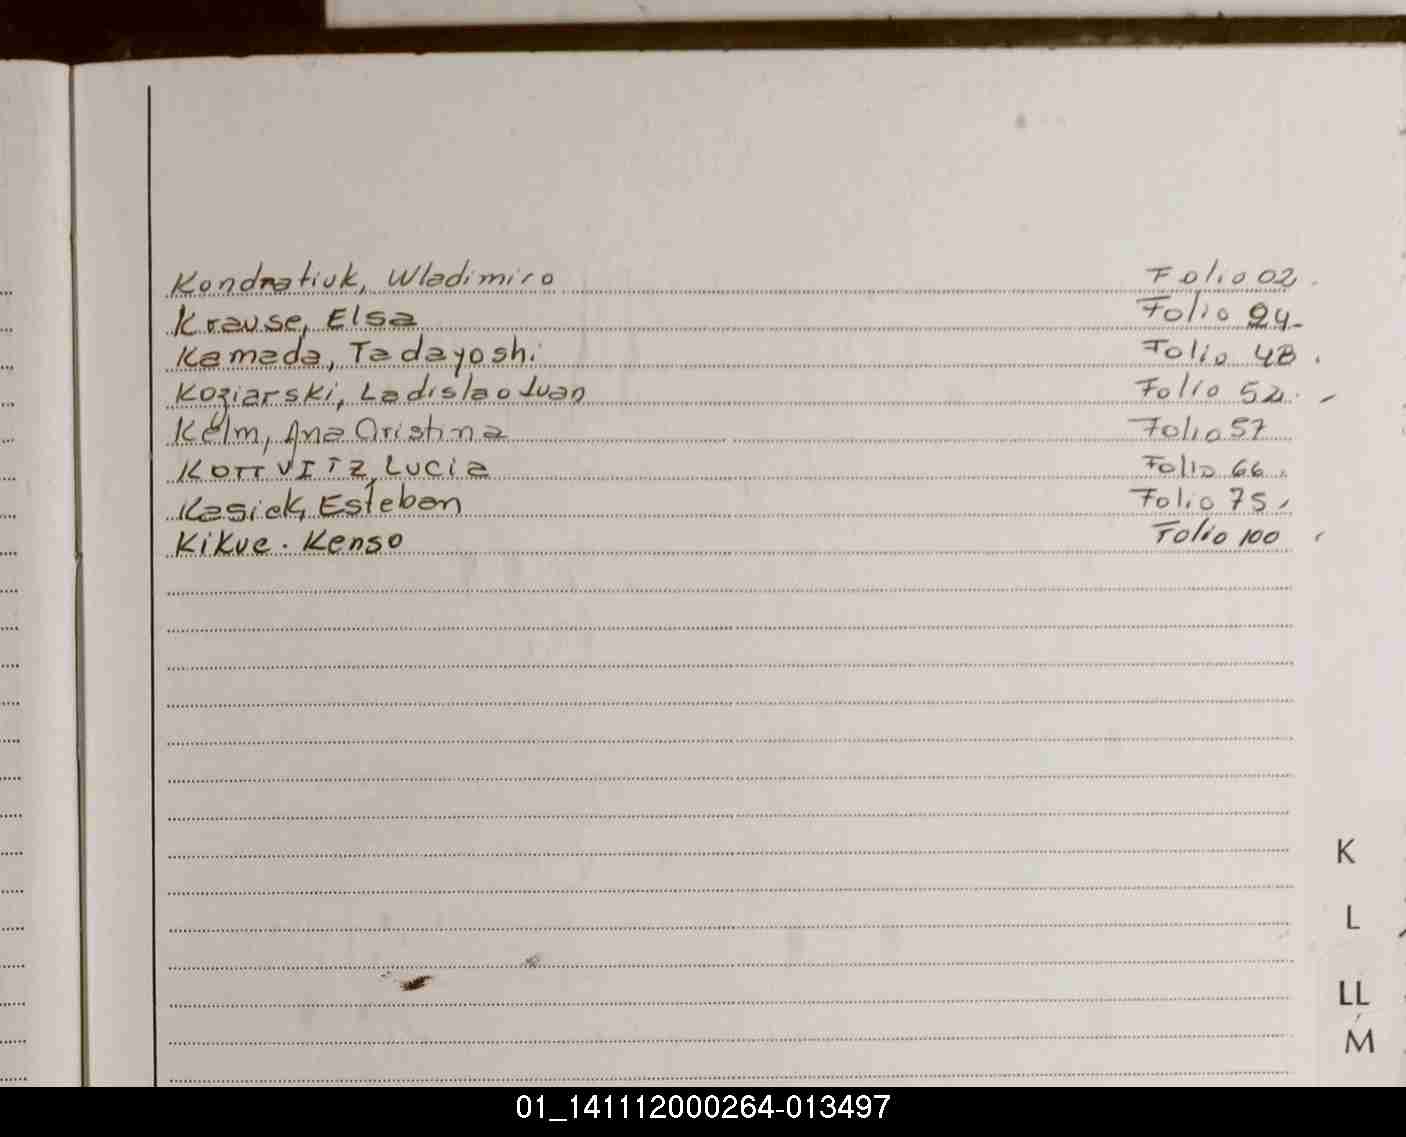 Kondratiuk, Wladimiro Folio 02
Krause, Elsa Folio 24
Kameda, Tadayoshi Folio 48
Koziarski, Ladislao Juan Folio 52
Kelm, Ana Cristina Folio 57
KOTTVITZ, Lucia Folio 66
Kasiek, Esteban Folio 75
Kikue. Kenso Folio 100
K
L
LL
M
01_141112000264-013497